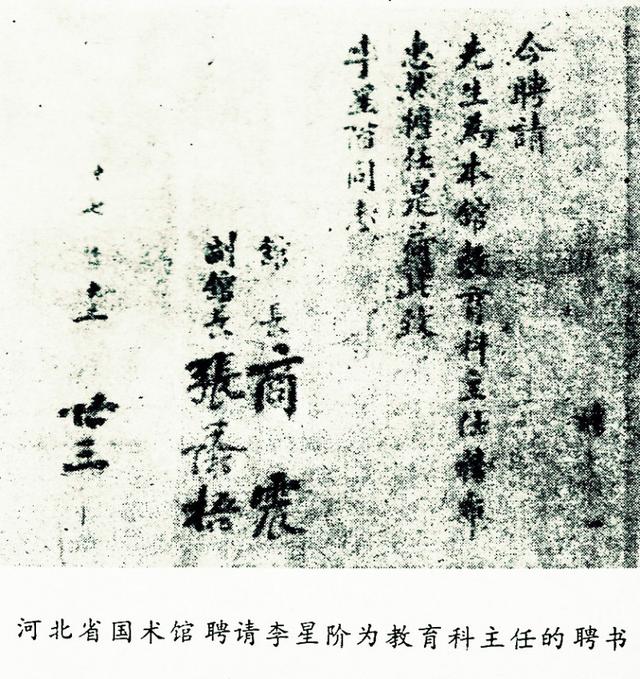 聘
今聘請
先生為本館教育科主任務希
惠然擔任是荷此致
李星階同志
館長 商震
副館長 張蔭梧
七 廿三
河北省国术馆聘请李星阶为教育科主任的聘书